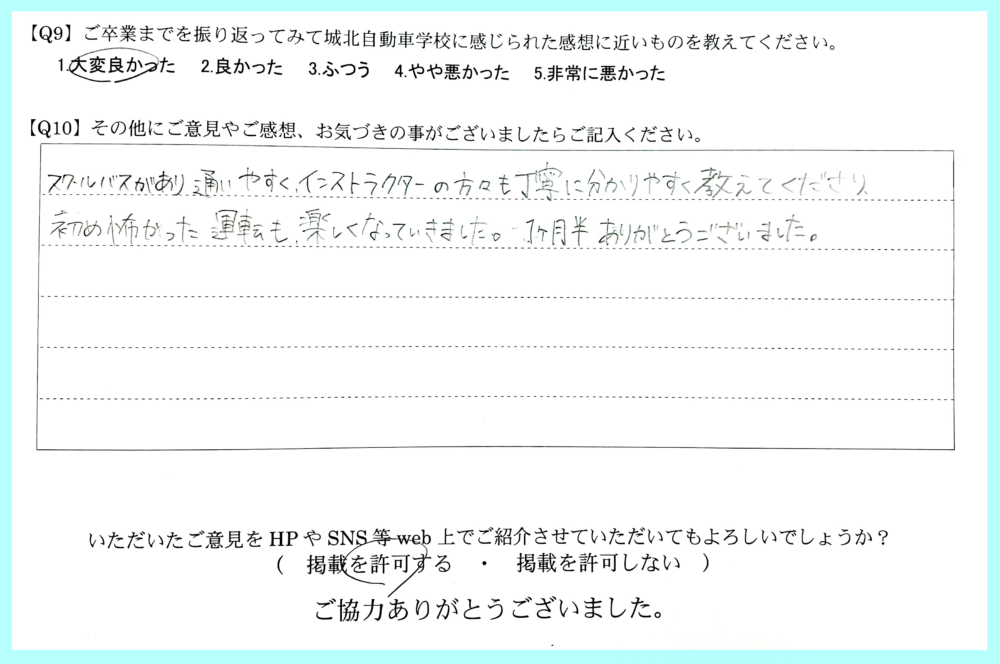 【Q9】ご卒業までを振り返ってみて城北自動車学校に感じられた感想に近いものを教えてください。
1.大変良かった　2.良かった　3.ふつう　4.やや悪かった　5.非常に悪かった
【Q10】その他にご意見やご感想、お気づきの事がございましたらご記入ください。
スクールバスがあり通いやすく、インストラクターの方々も丁寧に分かりやすく教えてくださり
初め怖かった運転も、楽しくなっていきました。1ヶ月半ありがとうございました。
いただいたご意見をHPやSNS等web上でご紹介させていただいてもよろしいでしょうか？
（　掲載を許可する　・　掲載を許可しない　）
ご協力ありがとうございました。